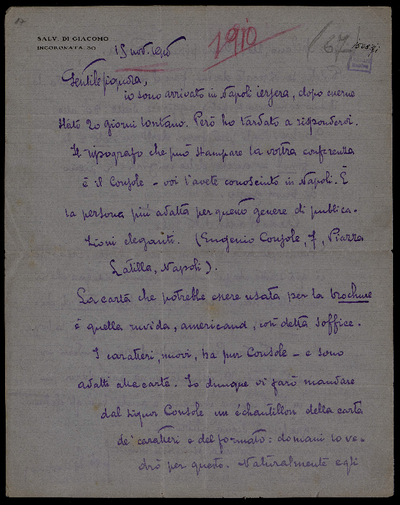 SALV. DI GIACOMO
INCORONATA, 30
15 nov. 1910
1910
167
Gentile Signora,
io sono arrivato in Napoli iersera, dopo esserne
stato 20 giorni lontano. Però ho tardato a rispondervi.
Il tipografo che può stampare la vostra conferenza
è il Console - voi l'avete conosciuto in Napoli. È
la persona più adatta per questo genere di pubblica-
zioni eleganti. (Eugenio Console, 7, Piazza
Latilla, Napoli).
La carta che potrebbe essere usata per la brochure
è quella ruvida, americana, così detta soffice.
I caratteri, nuovi, ha pur Console - e sono
adatti alla carta. Io dunque vi farò mandare
dal signor Console un échantillon della carta
de' caratteri e del formato: domani lo ve-
drò per questo. Naturalmente egli